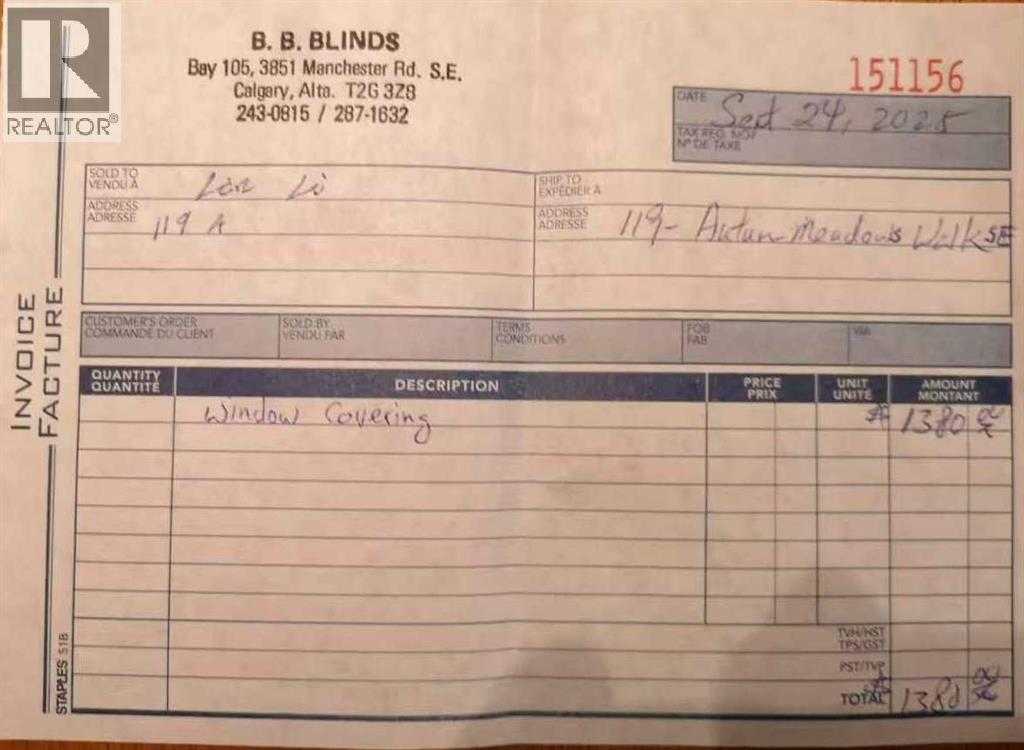 REALTOR®
B. B. BLINDS
Bay 105, 3851 Manchester Rd. S.E.
Calgary, Alta. T2G 3Z8
243-0815 / 287-1632
151156
DATE Sept 24, 2025
TAX REG. NO/
Nº DE TAXE
SOLD TO
VENDU À
Li
ADDRESS
ADRESSE
119 A
SHIP TO
EXPÉDIER À
ADDRESS
ADRESSE
119- Autum Meadows Walk SE
INVOICE
FACTURE
CUSTOMER'S ORDER
COMMANDE DU CLIENT
SOLD BY
VENDU PAR
TERMS
CONDITIONS
FOB
FAB
VIA
QUANTITY
QUANTITÉ
DESCRIPTION
PRICE
PRIX
UNIT
UNITÉ
AMOUNT
MONTANT
Window Covering
1380
TVH/HST
TPS/GST
PST/TVP
TOTAL
1380
STAPLES 51B